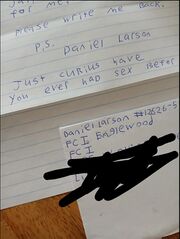 for me.
Please write me back.
P.S. Daniel Larson
Just curius have
you ever had sex befor
Daniel Larson #12626-5
FCI Englewood
FCI